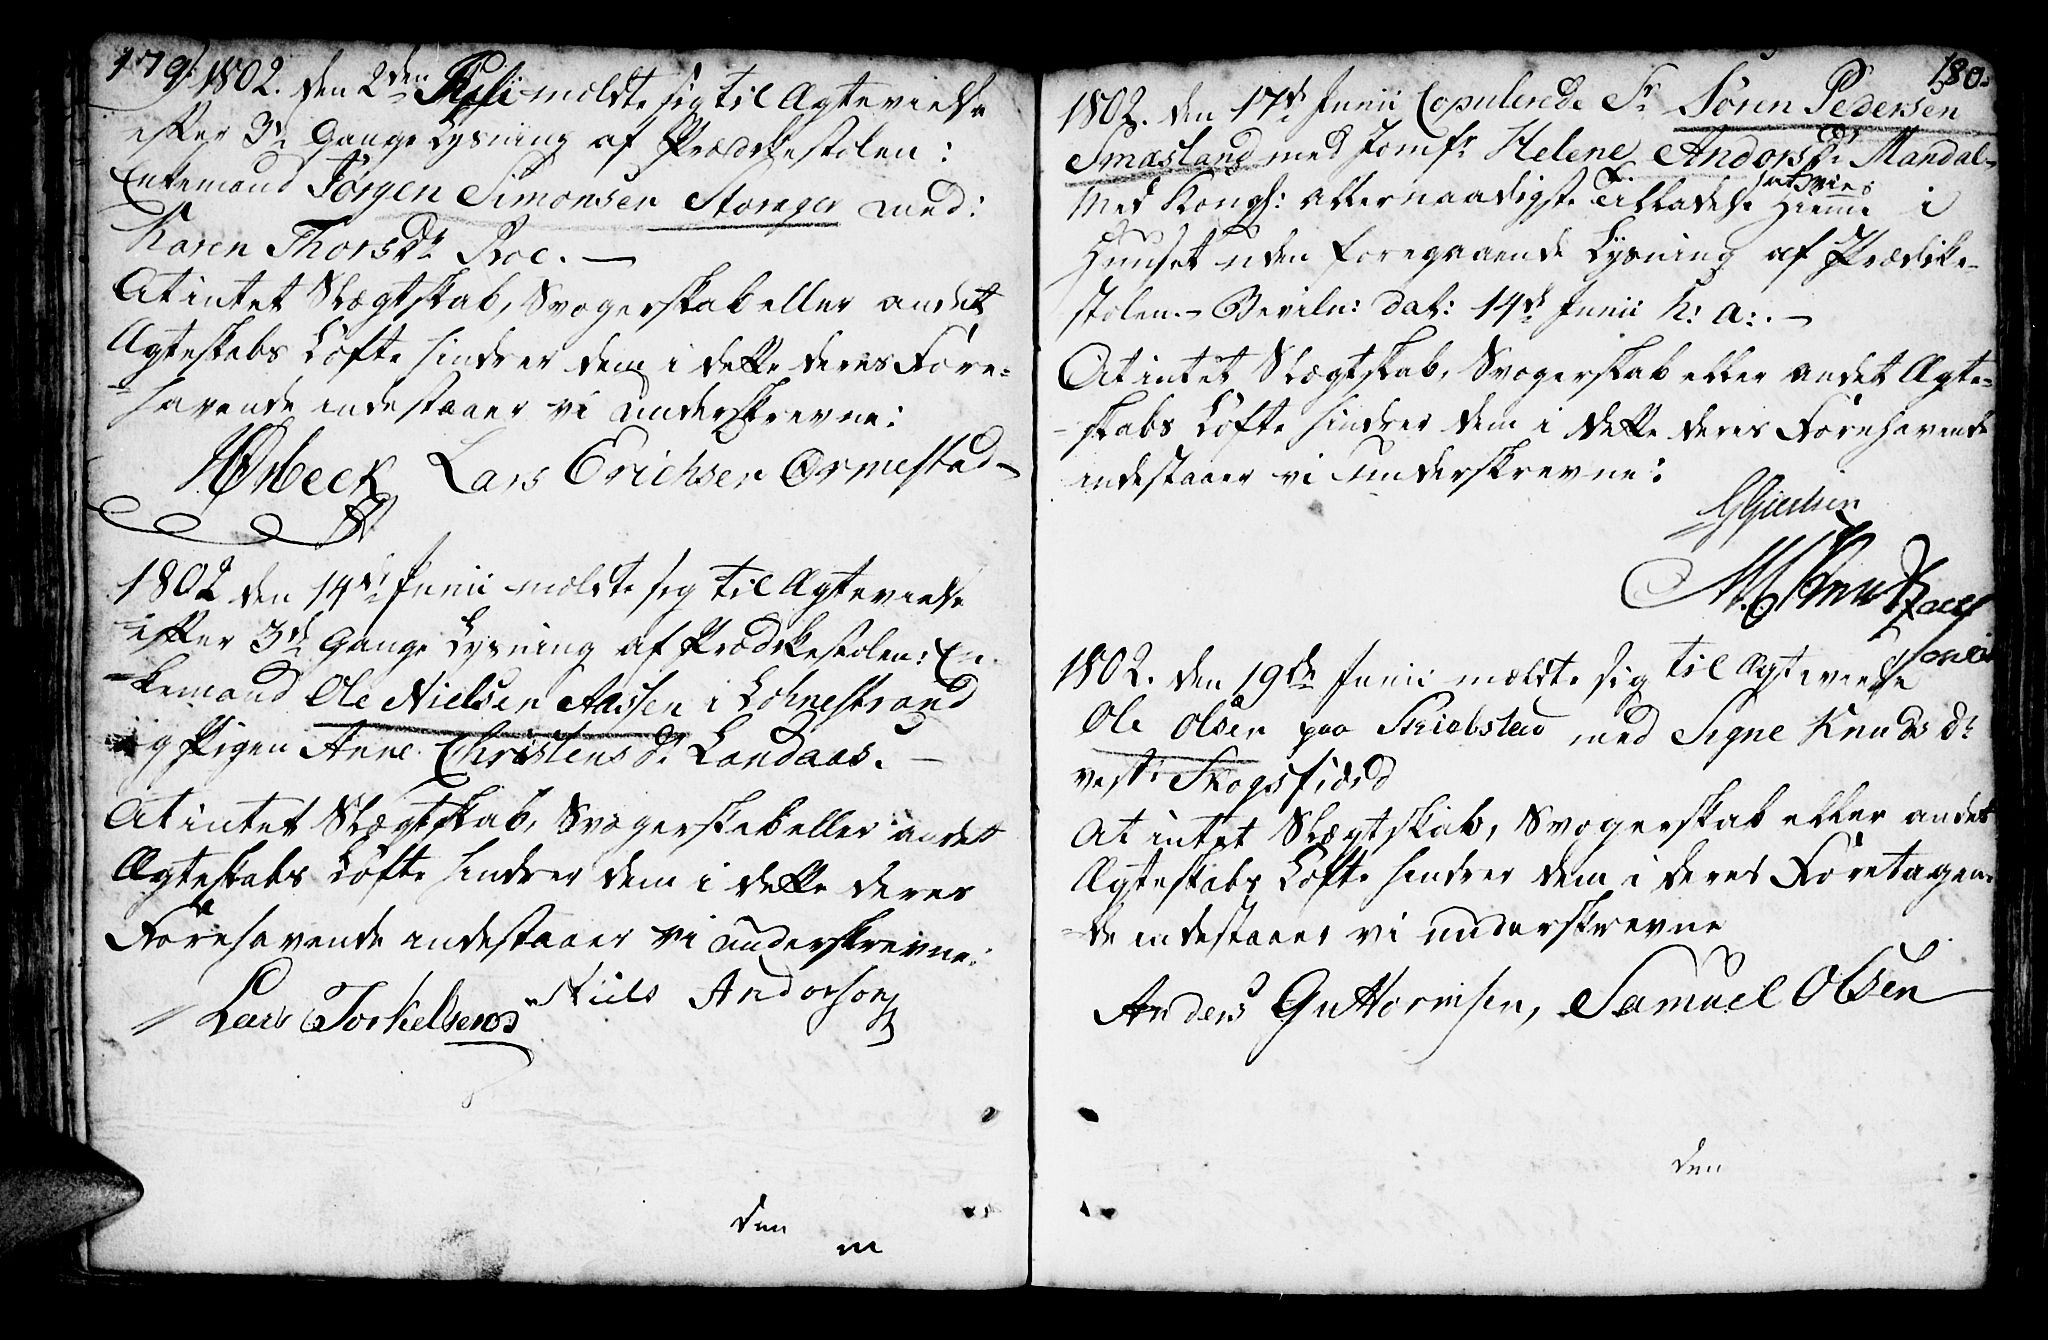 179.
1802. den 2den Juni meldte sig til Ægtevielse
efter 3de Gange Lysning af Prædikestolen:
Enkemand Jørgen Simonsen Storager med:
Karen Thorsdr Roe. —
At intet Slægtskab, Svogerskab eller andet
Ægteskabs Løfte hindrer dem i dette deres Fore-
havende indestaaer vi underskrevne:
Ørbeck Lars Erichsen Ormestad
1802 den 14de Junii meldte sig til Ægtevielse
efter 3de Gange Lysning af Prædikestolen: En-
kemand Ole Nielsen Aassen i Lohnestrand
og Pigen Anne Christensdr Landaas. —
At intet Slægtskab, Svogerskab eller andet
Ægteskabs Løfte hindrer dem i dette deres
Forehavende indestaaer vi underskrevne:
Lars Torkelsen Niels Anderson
den
180.
1802. den 17de Junii Copulerede Sr Søren Pedersen
Smaasland med Jomfr Helene Andorsdr Mandal
Med Kongl: allernaadigste Tilladelse at vies Hiemme i
Huuset uden foregaaende Lysning af Prædike-
stolen. — Beviln: dat: 14de Junii h: a:. —
At intet Slægtskab, Svogerskab eller andet Ægte-
skabs Løfte hindrer dem i dette deres Forehavende
indestaaer vi underskrevne:
1802. den 19de Junii meldte sig til Ægtevielse
Ole Olsen paa Skiebstad med Signe Knudsdr
vest: Skogsfiord
At intet Slægtskab, Svogerskab eller andet
Ægteskabs Løfte hindrer dem i deres Foretagen-
de indestaaer vi underskrevne
Anders Guttormsen, Samuel Olsen
den